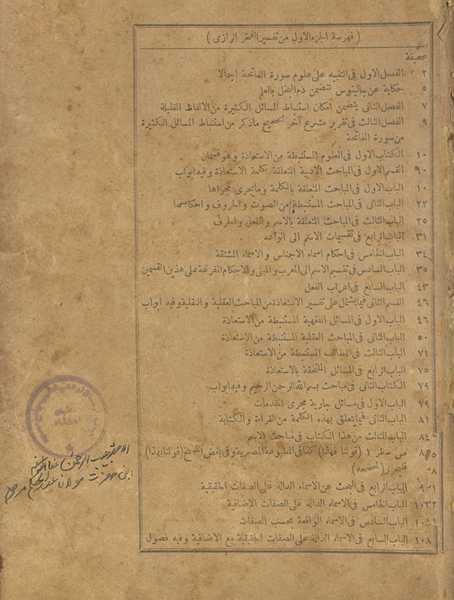 ( فهرسة الجزء الاول من تفسير الفخر الرازى )
صحيفة
٢ الفصل الاول فى التنبيه على علوم سورة الفاتحة اجمالا
٥ حكاية عن جالينوس تتضمن ذم
٧ الفصل الثانى يتضمن امكان استنباط المسائل الكثيرة من الالفاظ القليلة
٩ الفصل الثالث فى تقرير مشرع آخر لتصحيح ماذكر من استنباط المسائل الكثيرة
من سورة الفاتحة
١٠ الكتاب الاول فى العلوم المستنبطة من الاستعاذة وهو قسمان
٩٠ القسم الاول فى المباحث الادبية المتعلقة بكلمة الاستعاذة وفيه ابواب
١٠ الباب الاول فى المباحث المتعلقة بالكلمة وما يجرى مجراها
٢٢ الباب الثانى فى المباحث المستنبطة من الصوت والحروف واحكامها
٢٥ الباب الثالث فى المباحث المتعلقة بالاسم والفعل والحرف
٣١ الباب الرابع فى تقسيمات الاسم الى انواعه
٣٤ الباب الخامس فى احكام اسماء الاجناس والاسماء المشتقة
٣٥ الباب السادس فى تقسيم الاسم الى المعرب والمبنى والاحكام المفرعة على هذين القسمين
٤٣ الباب السابع فى اعراب الفعل
٤٦ القسم الثانى فيما يشتمل على تفسير الاستعاذة من المباحث العقلية والنقلية وفيه ابواب
٤٦ الباب الاول فى المسائل الفقهية المستنبطة من الاستعاذة
٥٠ الباب الثانى فى المباحث العقلية المستنبطة من الاستعاذة
٧١ الباب الثالث فى اللطائف المستنبطة من الاستعاذة
٧٥ الباب الرابع فى المسائل الملتحقة بالاستعاذة
٧٩ الكتاب الثانى فى مباحث بسم الله الرحمن الرحيم وفيه ابواب
٧٩ الباب الاول فى مسائل جارية مجرى المقدمات
٨١ الباب الثانى فيما يتعلق بهذه الكلمة من القراءة والكتابة
٨٤ الباب الثالث من هذا الكتاب فى مباحث الاسم
الباب الرابع فى البحث عن الاسماء الدالة على الصفات الحقيقية
الباب الخامس فى الاسماء الدالة على الصفات الاضافية
الباب السادس فى الاسماء الواقعة بحسب الصفات
١٠٨ الباب السابع فى الاسماء الدالة على الصفات الحقيقية مع الاضافية وفيه فصول